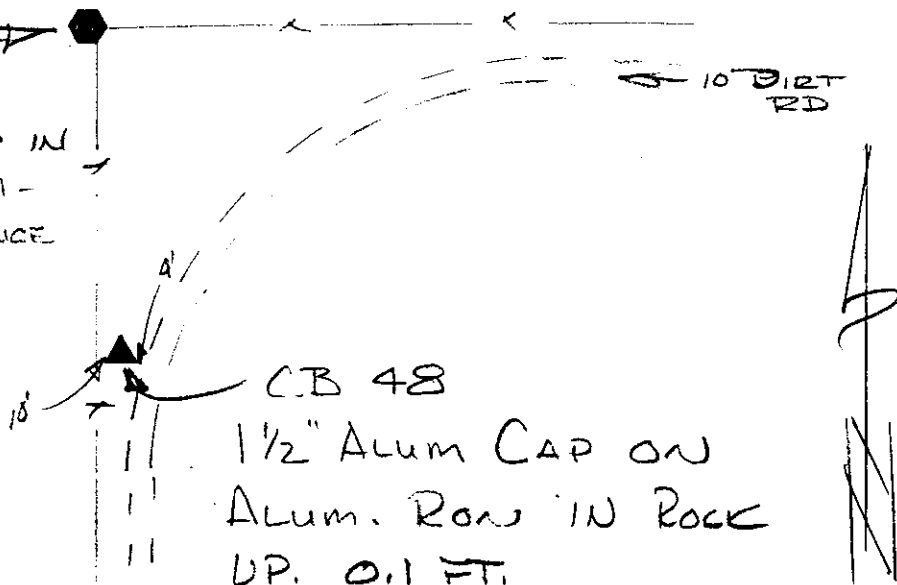 10' DIRT
RD
IN
4'
10'
C.B 48
1½" ALUM CAP ON
ALUM. ROW IN ROCK
UP. 0.1 FT.